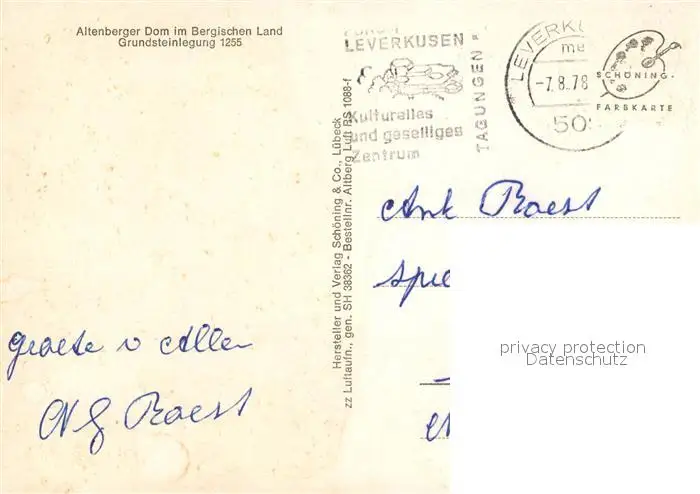 Altenberger Dom im Bergischen Land
Grundsteinlegung 1255
LEVERKUSEN
Kulturelles
und geselliges
Zentrum
TAGUNGEN
LEVERKU
-7.8.78
50
SCHÖNING-
FARBKARTE
Hersteller und Verlag Schöning & Co., Lübeck
zz Luftaufn., gen. SH 38362 - Bestellnr. Altberg Luft BS 1088-f
Roest
groete v Allen
Roest
privacy protection
Datenschutz